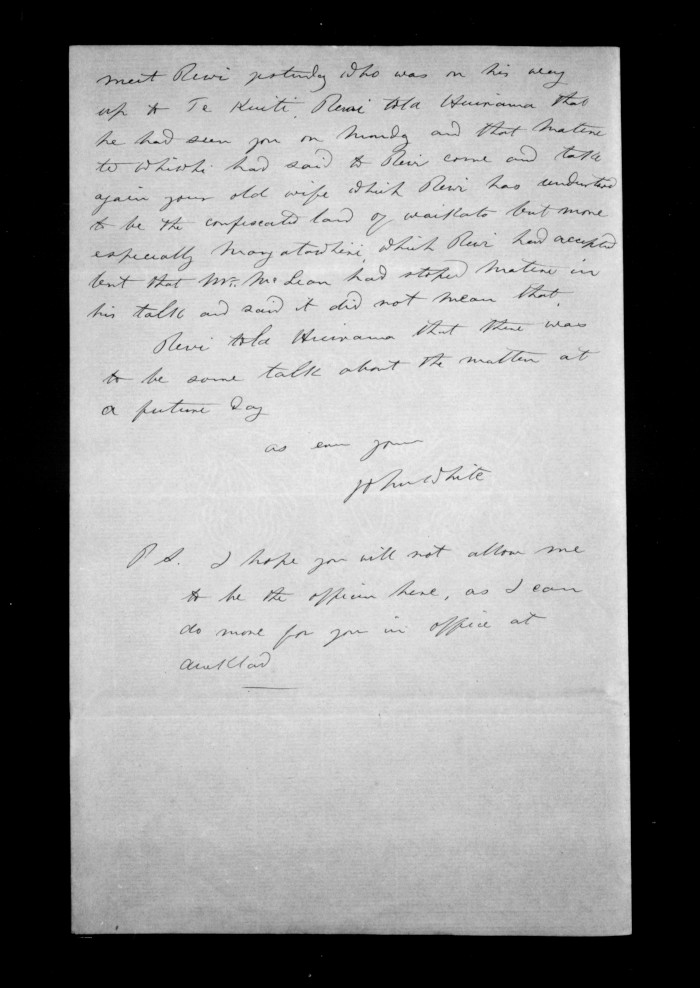 meet Rewi yesterday who was on his way
up to Te Kuiti. Rewi told Huirama that
he had seen you on Monday and that Matene
te whiwhi had said to Rewi come and take
again your old wife which Rewi has understood
to be the confiscated land of waikato but more
especially Mangatawhiri, which Rewi had accepted
but that Mr. McLean had stoped Matene in
his talk and said it did not mean that.
Rewi told Huirama that there was
to be some talk about the matter at
a future day
as ever yours
John White
P S. I hope you will not allow me
to be the officer here, as I can
do more for you in office at
auckland